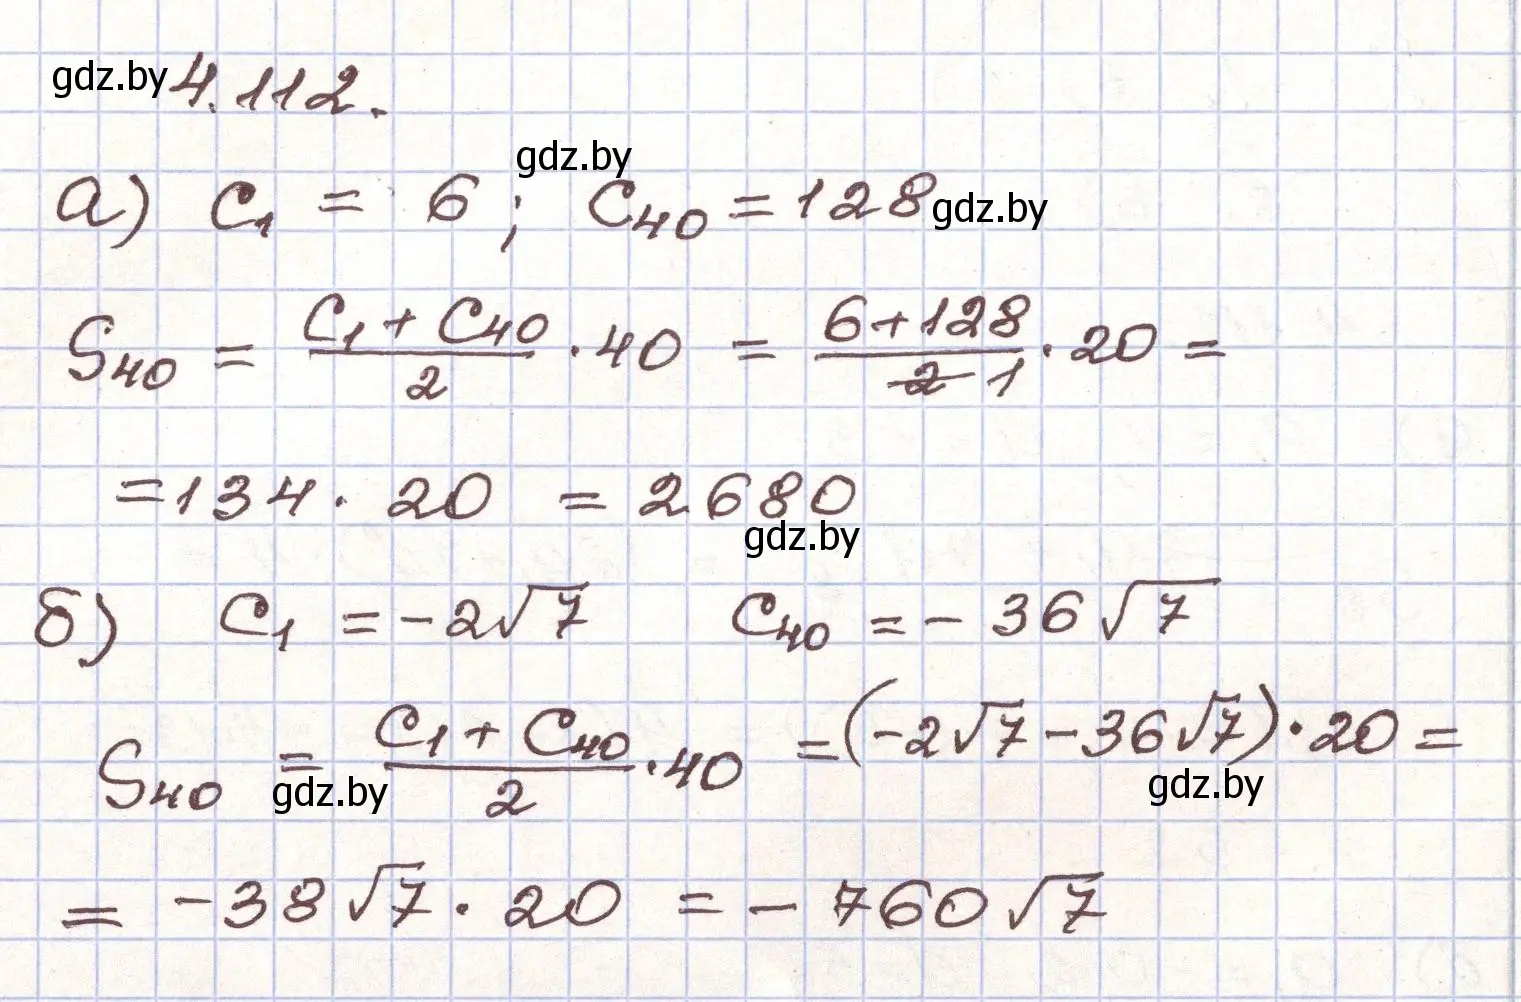 gdz.by 4.112.
gdz.by
а) C₁ = 6 ; C₄₀ = 128 gdz.by
S₄₀ = (C₁ + C₄₀)/2 · 40 = (6+128)/(2 1) · 20 =
= 134 · 20 = 2680
gdz.by
б) C₁ = -2√7 C₄₀ = - 36√7
S₄₀ = (C₁ + C₄₀)/2 · 40 = (-2√7 - 36√7) · 20 =
gdz.by gdz.by
= -38√7 · 20 = - 760√7